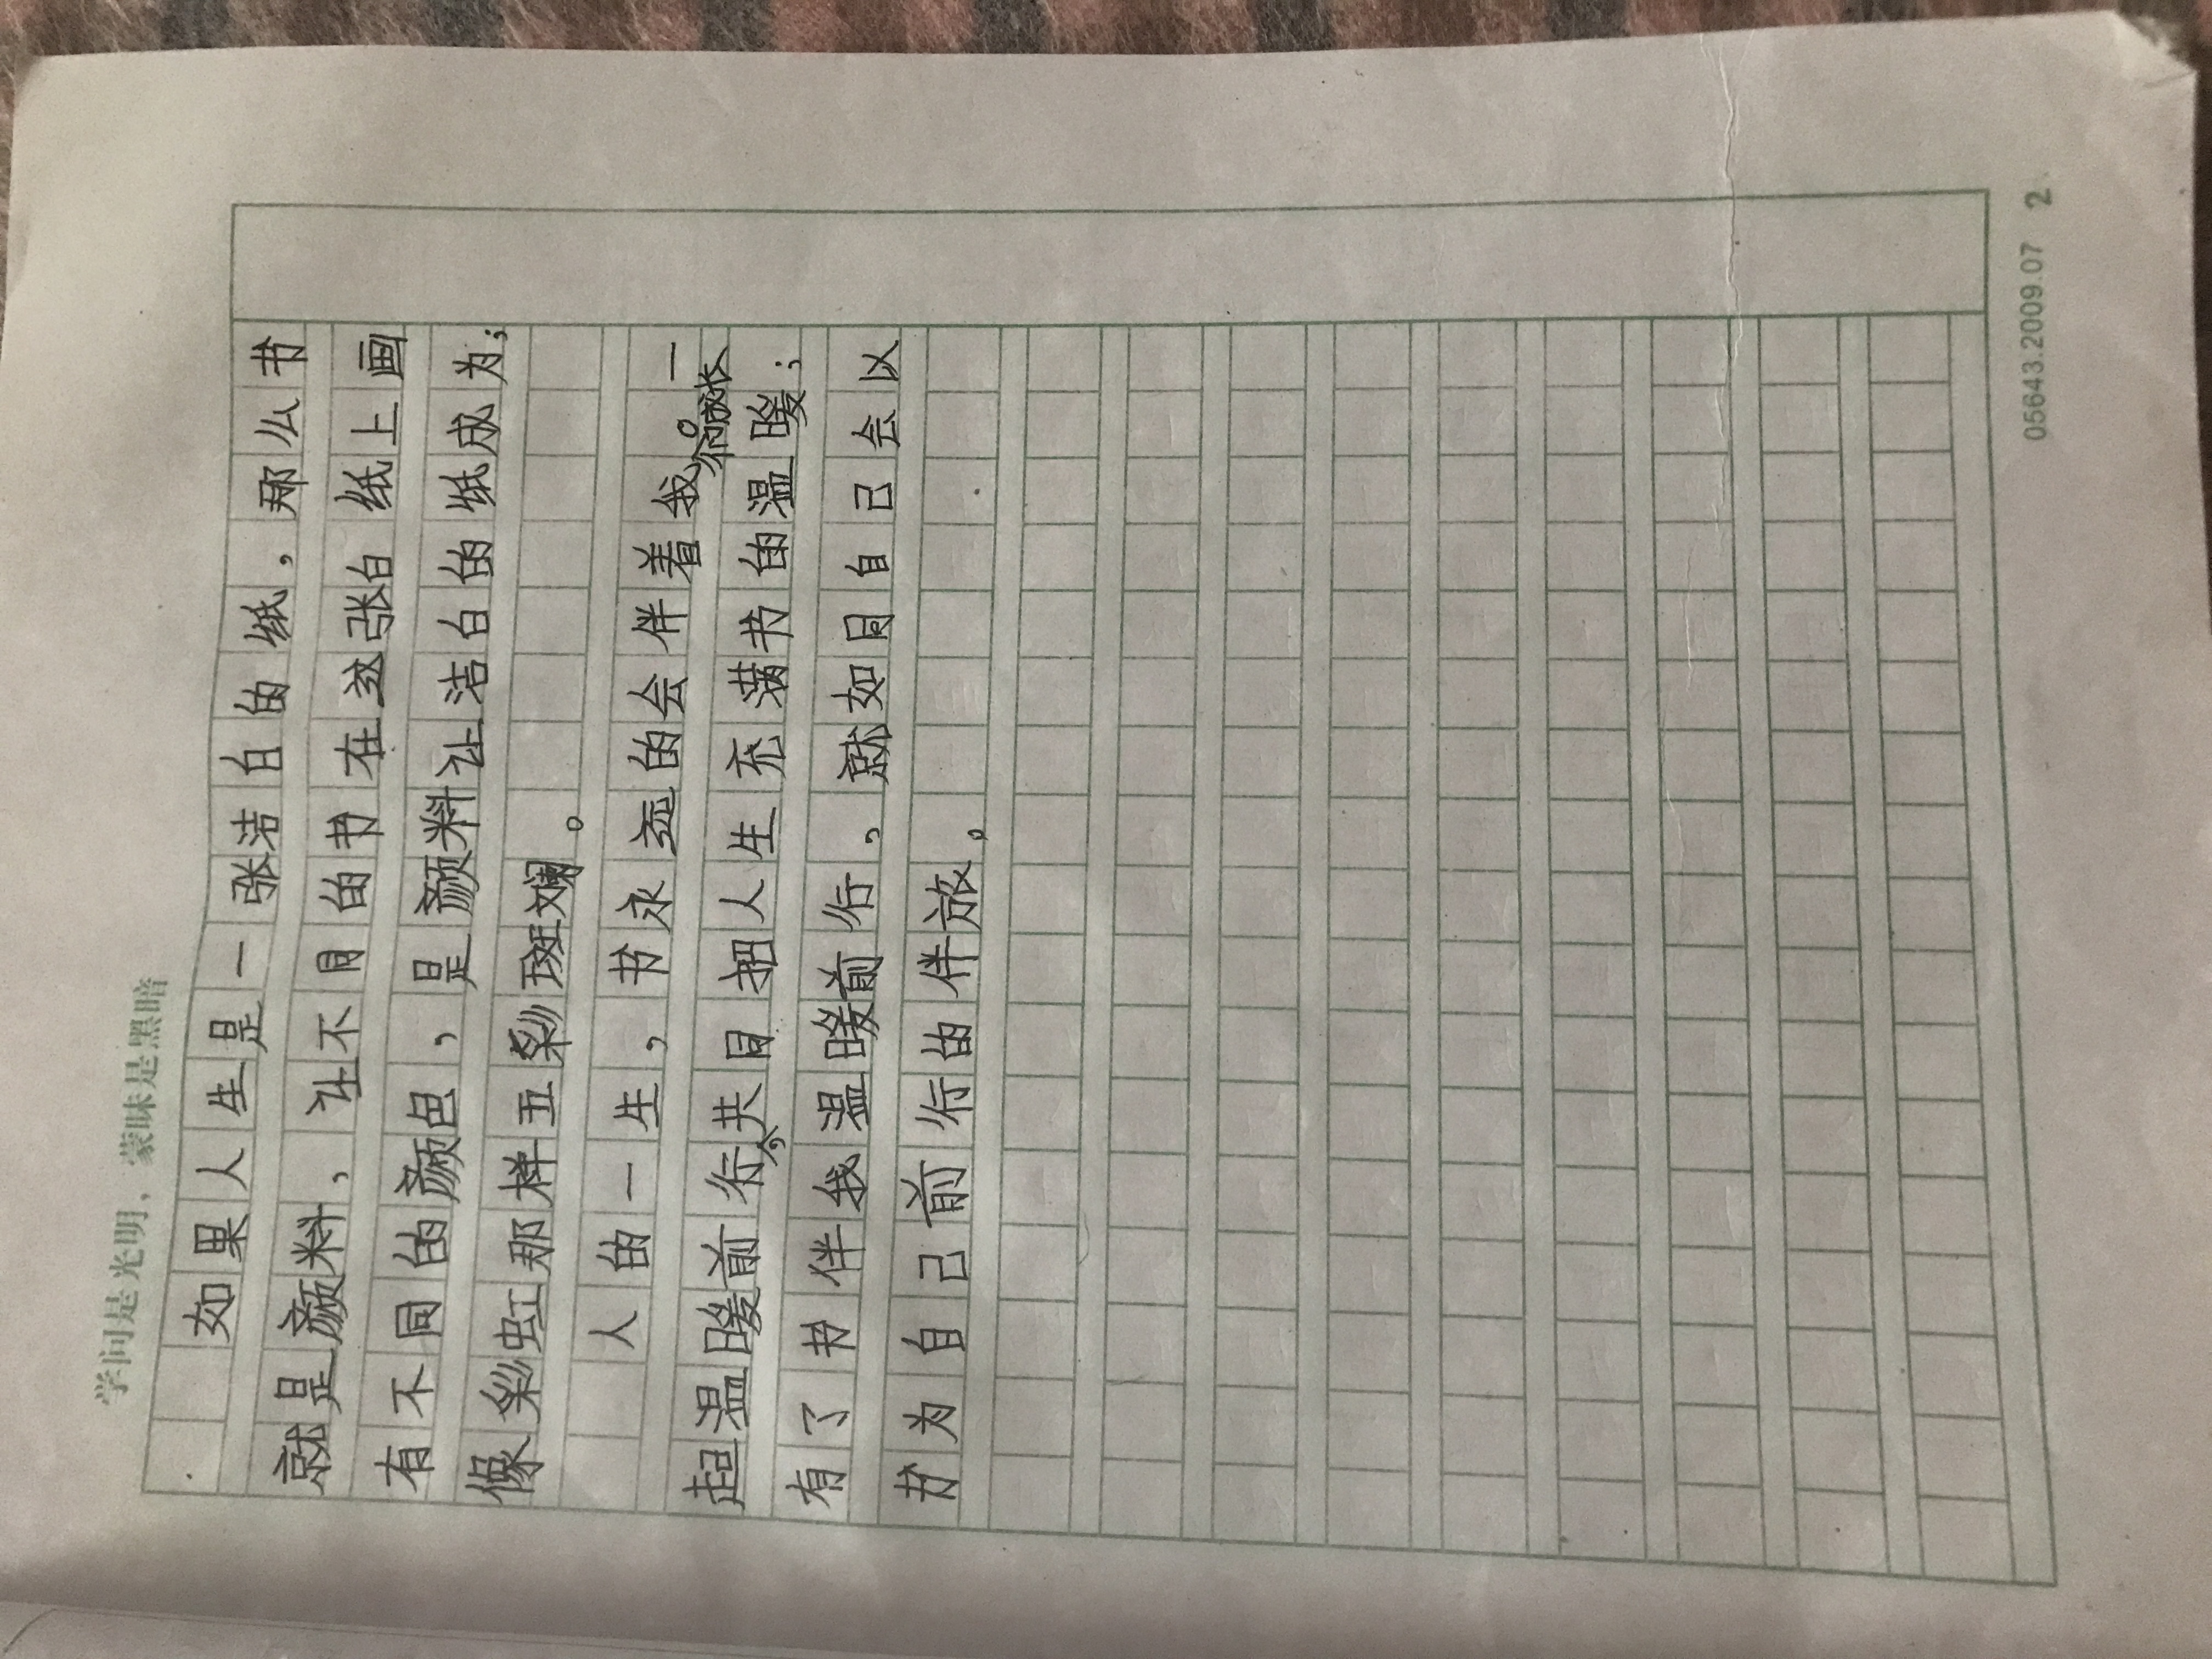 学问是光明，蒙昧是黑暗
如果人生是一张洁白的纸，那么书
就是颜料，让不同的书在这张白纸上画
有不同的颜色，是颜料让洁白的纸成为；
像彩虹那样五彩斑斓。
人的一生，书永远的会伴着我。一
起温暖前行，共同把人生充满书的温暖；
有了书伴我温暖前行，就如同自己会以
书为自己前行的伴旅。
05643.2009.07 2